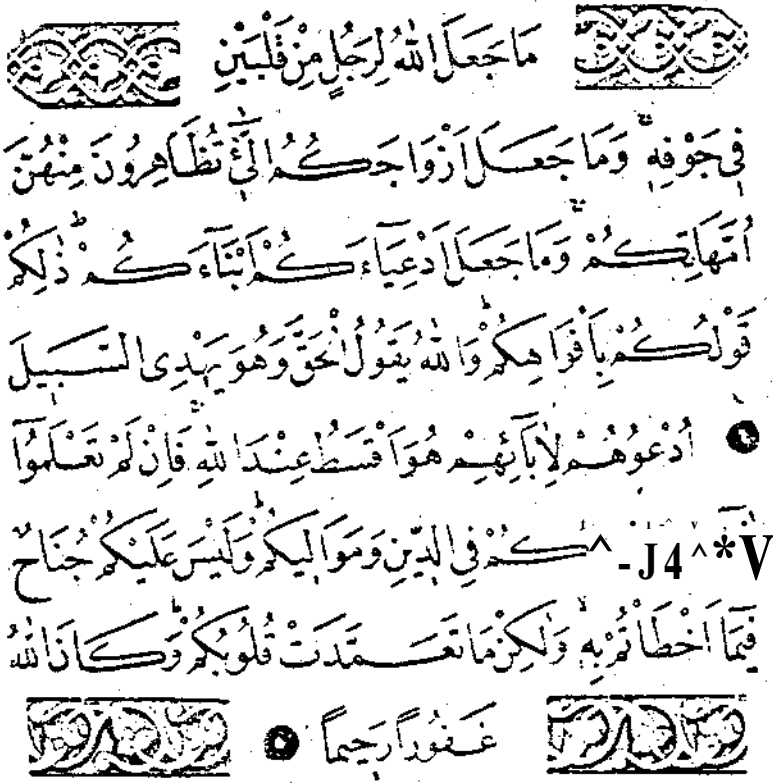 مَا جَعَلَ اللّٰهُ لِرَجُلٍ مِنْ قَلْبَيْنِ
فٖى جَوْفِهٖۚ وَمَا جَعَلَ اَزْوَاجَكُمُ الّٰٓئٖ تُظَاهِرُونَ مِنْهُنَّ
اُمَّهَاتِكُمْۚ وَمَا جَعَلَ اَدْعِيَٓاءَكُمْ اَبْنَٓاءَكُمْؕ ذٰلِكُمْ
قَوْلُكُمْ بِاَفْوَاهِكُمْؕ وَاللّٰهُ يَقُولُ الْحَقَّ وَهُوَ يَهْدِى السَّبٖيلَ
٤ اُدْعُوهُمْ لِاٰبَٓائِهِمْ هُوَ اَقْسَطُ عِنْدَ اللّٰهِۚ فَاِنْ لَمْ تَعْلَمُٓوا
كُمْ فِى الدّٖينِ وَمَوَالٖيكُمْؕ وَلَيْسَ عَلَيْكُمْ جُنَاحٌ ^-J4^*V
فٖيمَٓا اَخْطَاْتُمْ بِهٖۙ وَلٰكِنْ مَا تَعَمَّدَتْ قُلُوبُكُمْؕ وَكَانَ اللّٰهُ
غَفُورًا رَحٖيمًا ٥